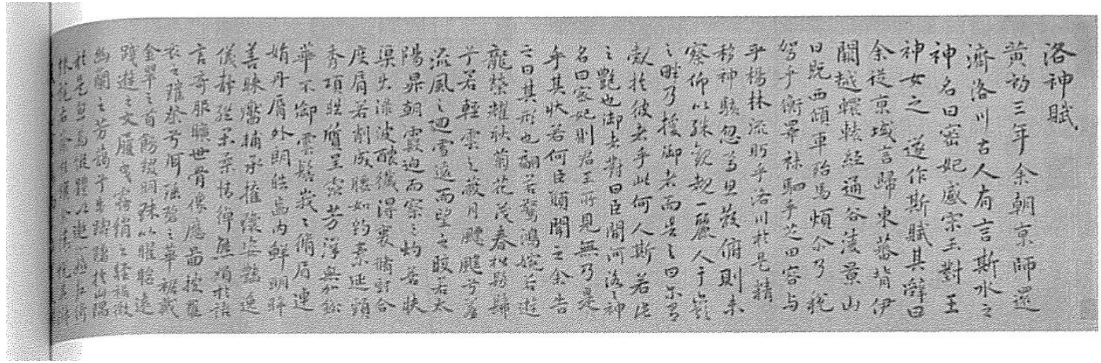 洛神賦
黃初三年余朝京師還
濟洛川古人有言斯水之
神名曰宓妃感宋玉對王
神女之 遂作斯賦其辭曰
余從京域言歸東藩背伊
闕越轘轅經通谷陵景山
日既西傾車殆馬煩尒乃稅
駕乎蘅皋秣駟乎芝田容與
乎楊林流眄乎洛川於是精
移神駭忽焉思散俯則未
察仰以殊觀覩一麗人于巖
之畔乃援御者而告之曰尒有
覿於彼者乎此何人斯若此
之豔也御者對曰臣聞河洛之神
名曰宓妃則君王所見無乃是
乎其狀若何臣願聞之余告
之曰其形也翩若驚鴻婉若遊
龍榮耀秋菊花茂春松髣髴
兮若輕雲之蔽月飄颻兮若
流風之迴雪遠而望之皎若太
陽昇朝霞迫而察之灼若芙
蕖出淥波穠纖得衷脩短合
度肩若削成腰如約素延頸
秀項皓質呈露芳澤無加鉛
華不御雲髻峩峩脩眉連
娟丹脣外朗皓齒內鮮明眸
善睞靨輔承權瓌姿豔逸
儀靜體閑柔情綽態媚於語
言奇服曠世骨像應圖披羅
衣之璀粲兮珥瑤碧之華裾戴
金翠之首飾綴明珠以耀軀遠
踐遊之文履曳霧綃之輕裾微
幽蘭之芳藹兮步踟躕於山隅
於是忽焉縱體以遨以嬉左倚